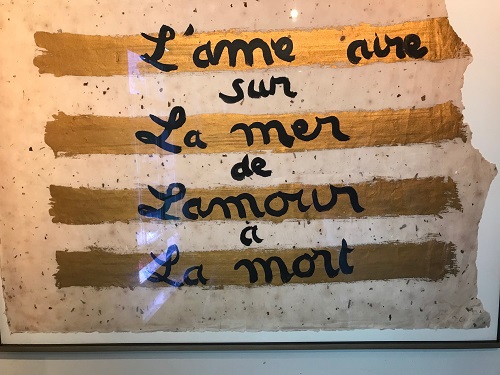 L'ame aire
sur
La mer
de
Lamour
a
La mort